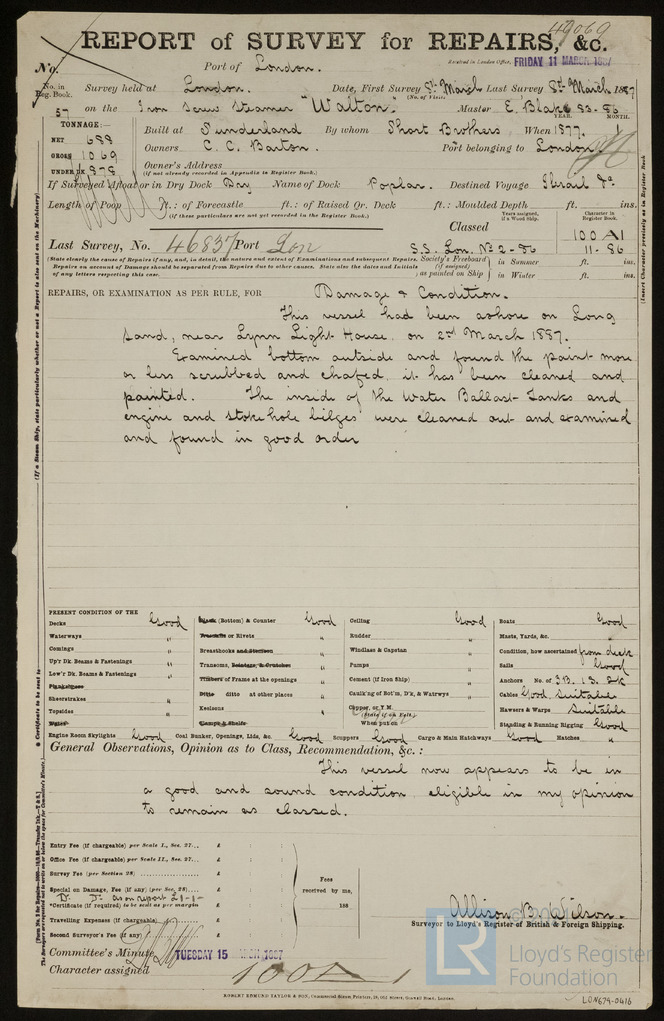 49069
REPORT of SURVEY for REPAIRS, &c.
No.
Port of London.
Received in London Office, FRIDAY 11 MARCH 1887
No. in Reg. Book.
57
Survey held at London. Date, First Survey 8th March Last Survey 8th March 1887
(No. of Visits)
on the Iron Screw Steamer "Walton" Master E. Blake 83-86
YEAR. MONTH.
TONNAGE:—
NET 688
GROSS 1069
UNDER DK 878
Built at Sunderland By whom Short Brothers When 1877. 1
Owners C. C. Barton. Port belonging to London.
Owner's Address
(if not already recorded in Appendix to Register Book.)
If Surveyed Afloat or in Dry Dock Dry Name of Dock Poplar. Destined Voyage Ibrail &c
Length of Poop ft.: of Forecastle ft.: of Raised Qr. Deck ft.: Moulded Depth ft. ins.
(if these particulars are not yet recorded in the Register Book.)
Classed
Years assigned, if a Wood Ship.
Character in Register Book.
100 A1
11-86
Last Survey, No. 46837 Port Lon
S.S. Lon. No 2-86
(State clearly the cause of Repairs if any, and, in detail, the nature and extent of Examinations and subsequent Repairs.
Repairs on account of Damage should be separated from Repairs due to other causes. State also the dates and Initials
of any letters respecting this case.
Society's Freeboard (if assigned) as painted on Ship
in Summer ft. ins.
in Winter ft. ins.
REPAIRS, OR EXAMINATION AS PER RULE, FOR Damage & Condition.
This vessel had been ashore on Long
Sand, near Lynn Light House, on 2nd March 1887.
Examined bottom outside and found the paint more
or less scrubbed and chafed, it has been cleaned and
painted. The inside of the Water Ballast Tanks and
engine and stokehole bilges were cleaned out and examined
and found in good order
PRESENT CONDITION OF THE
Decks Good
Waterways "
Comings "
Up'r Dk. Beams & Fastenings "
Low'r Dk. Beams & Fastenings "
Planksheers
Sheerstrakes "
Topsides "
Wales
Plank (Bottom) & Counter Good
Treenails or Rivets "
Breasthooks and Stemson "
Transoms, Pointers, & Crutches "
Timbers of Frame at the openings "
Ditto ditto at other places "
Keelsons "
Clamps & Shelfs
Ceiling Good
Rudder "
Windlass & Capstan "
Pumps "
Cement (if Iron Ship) "
Caulk'ng of Bot'm, D'k, & Watrwys "
Copper, or Y.M.
(State if on Felt.)
When put on
Boats Good
Masts, Yards, &c. "
Condition, how ascertained from deck
Sails Good
Anchors No. of 3B. 1S. 2K
Cables Good. Suitable
Hawsers & Warps Suitable
Standing & Running Rigging Good
Engine Room Skylights Good Coal Bunker, Openings, Lids, &c. Good Scuppers Good Cargo & Main Hatchways Good Hatches "
General Observations, Opinion as to Class, Recommendation, &c.:
This vessel now appears to be in
a good and sound condition, eligible in my opinion
to remain as classed.
Entry Fee (if chargeable) per Scale I., Sec. 27... £ : :
Office Fee (if chargeable) per Scale II., Sec. 27... £ : :
Survey Fee (per Section 28) £ : :
Special on Damage, Fee (if any) (per Sec. 28)... £ : :
D. D. as on report £1-1-
*Certificate (if required) to be sent as per margin
Travelling Expenses (if chargeable) £ : :
Second Surveyor's Fee (if any) £ : :
Fees received by me,
188
Allison B. Wilson.
Surveyor to Lloyd's Register of British & Foreign Shipping.
Committee's Minute TUESDAY 15 MARCH 1887
Character assigned 100A1
ROBERT EDMUND TAYLOR & SON,
LR
Lloyd's Register
Foundation
LON679-0416
(If a Steam Ship, state particularly whether or not a Report is also sent on the Machinery)
(Insert Character precisely as in Register Book.)